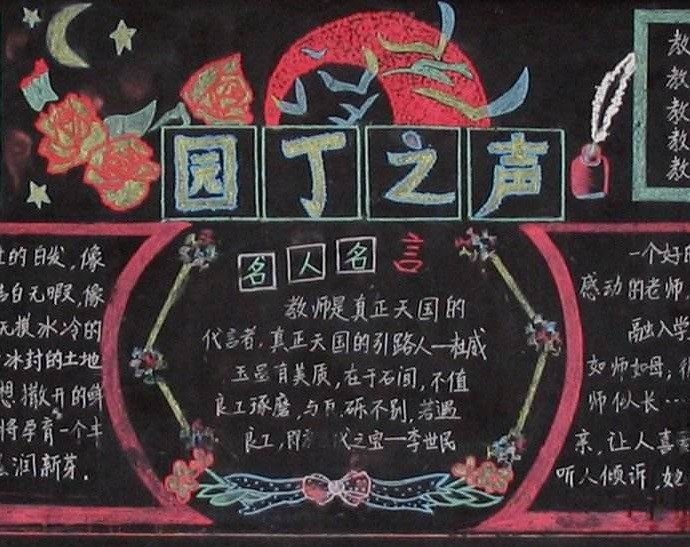 园丁之声
教
教
教
教
教
的白发,像
洁白无暇,像
冰冷的
冰封的土地
想撒开的鲜
将孕育一个丰
润新芽.
名人名言
教师是真正天国的
代言者,真正天国的引路人—杜威
玉虽有美质,在于石间,不值
良工琢磨,与瓦砾不别,若遇
良工,即 代之宝—李世民
一个好的
感动的老师,
融入学
如师如母;
师似长……
亲,让人喜
听人倾诉,她